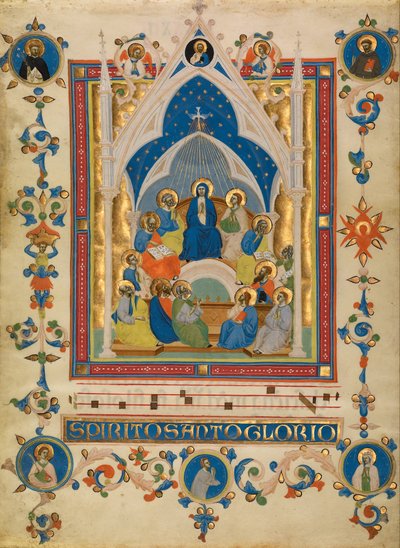 SPIRITO SANTO GLORIO